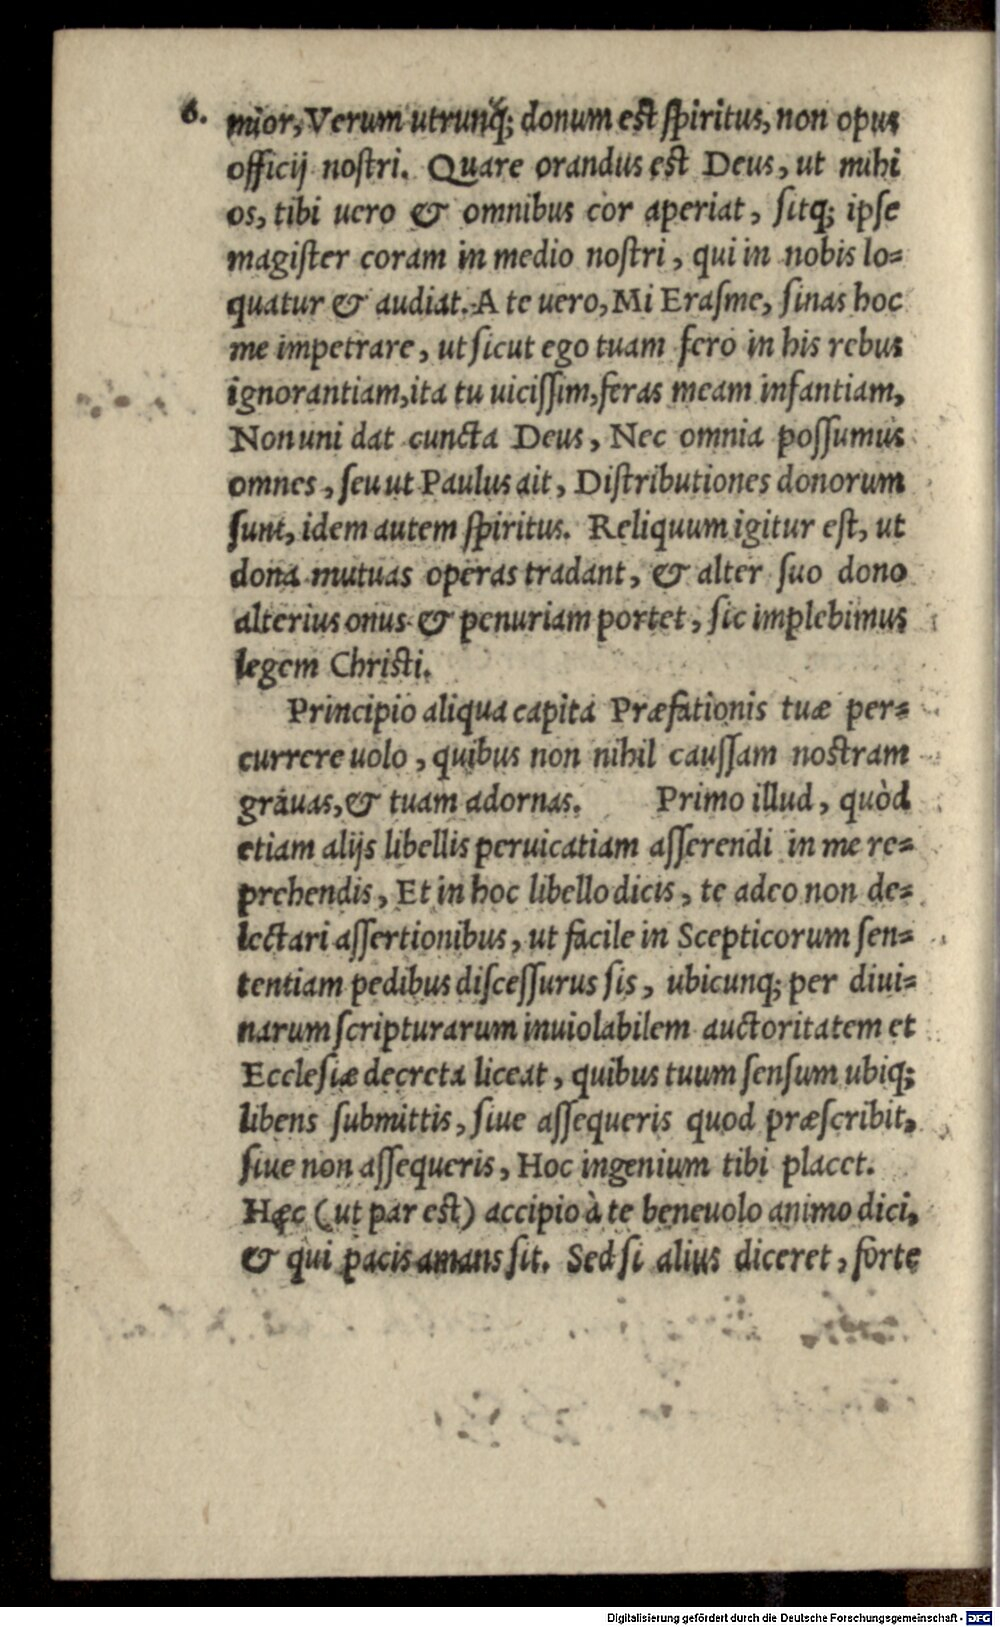 6. mur̀or, Verum utrunq́; donum est spiritus, non opus
officij nostri. Quare orandus est Deus, ut mihi
os, tibi uero & omnibus cor aperiat, sitq; ipse
magister coram in medio nostri, qui in nobis lo=
quatur & audiat. A te uero, Mi Erasme, sinas hoc
me impetrare, ut sicut ego tuam fero in his rebus
ignorantiam, ita tu uicissim, feras meam infantiam,
Non uni dat cuncta Deus, Nec omnia possumus
omnes, seu ut Paulus ait, Distributiones donorum
sunt, idem autem spiritus. Reliquum igitur est, ut
dona mutuas operas tradant, & alter suo dono
alterius onus & penuriam portet, sic implebimus
legem Christi.
Principio aliqua capita Præfationis tuæ per=
currere uolo, quibus non nihil caussam nostram
grauas, & tuam adornas. Primo illud, quòd
etiam alijs libellis peruicatiam asserendi in me re=
prehendis, Et in hoc libello dicis, te adeo non de=
lectari assertionibus, ut facile in Scepticorum sen=
tentiam pedibus discessurus sis, ubicunq; per diui=
narum scripturarum inuiolabilem auctoritatem et
Ecclesiæ decreta liceat, quibus tuum sensum ubiq;
libens submittis, siue assequeris quod præscribit,
siue non assequeris, Hoc ingenium tibi placet.
Hæc (ut par est) accipio à te beneuolo animo dici,
& qui pacis amans sit. Sed si alius diceret, forte
Digitalisierung gefördert durch die Deutsche Forschungsgemeinschaft - DFG